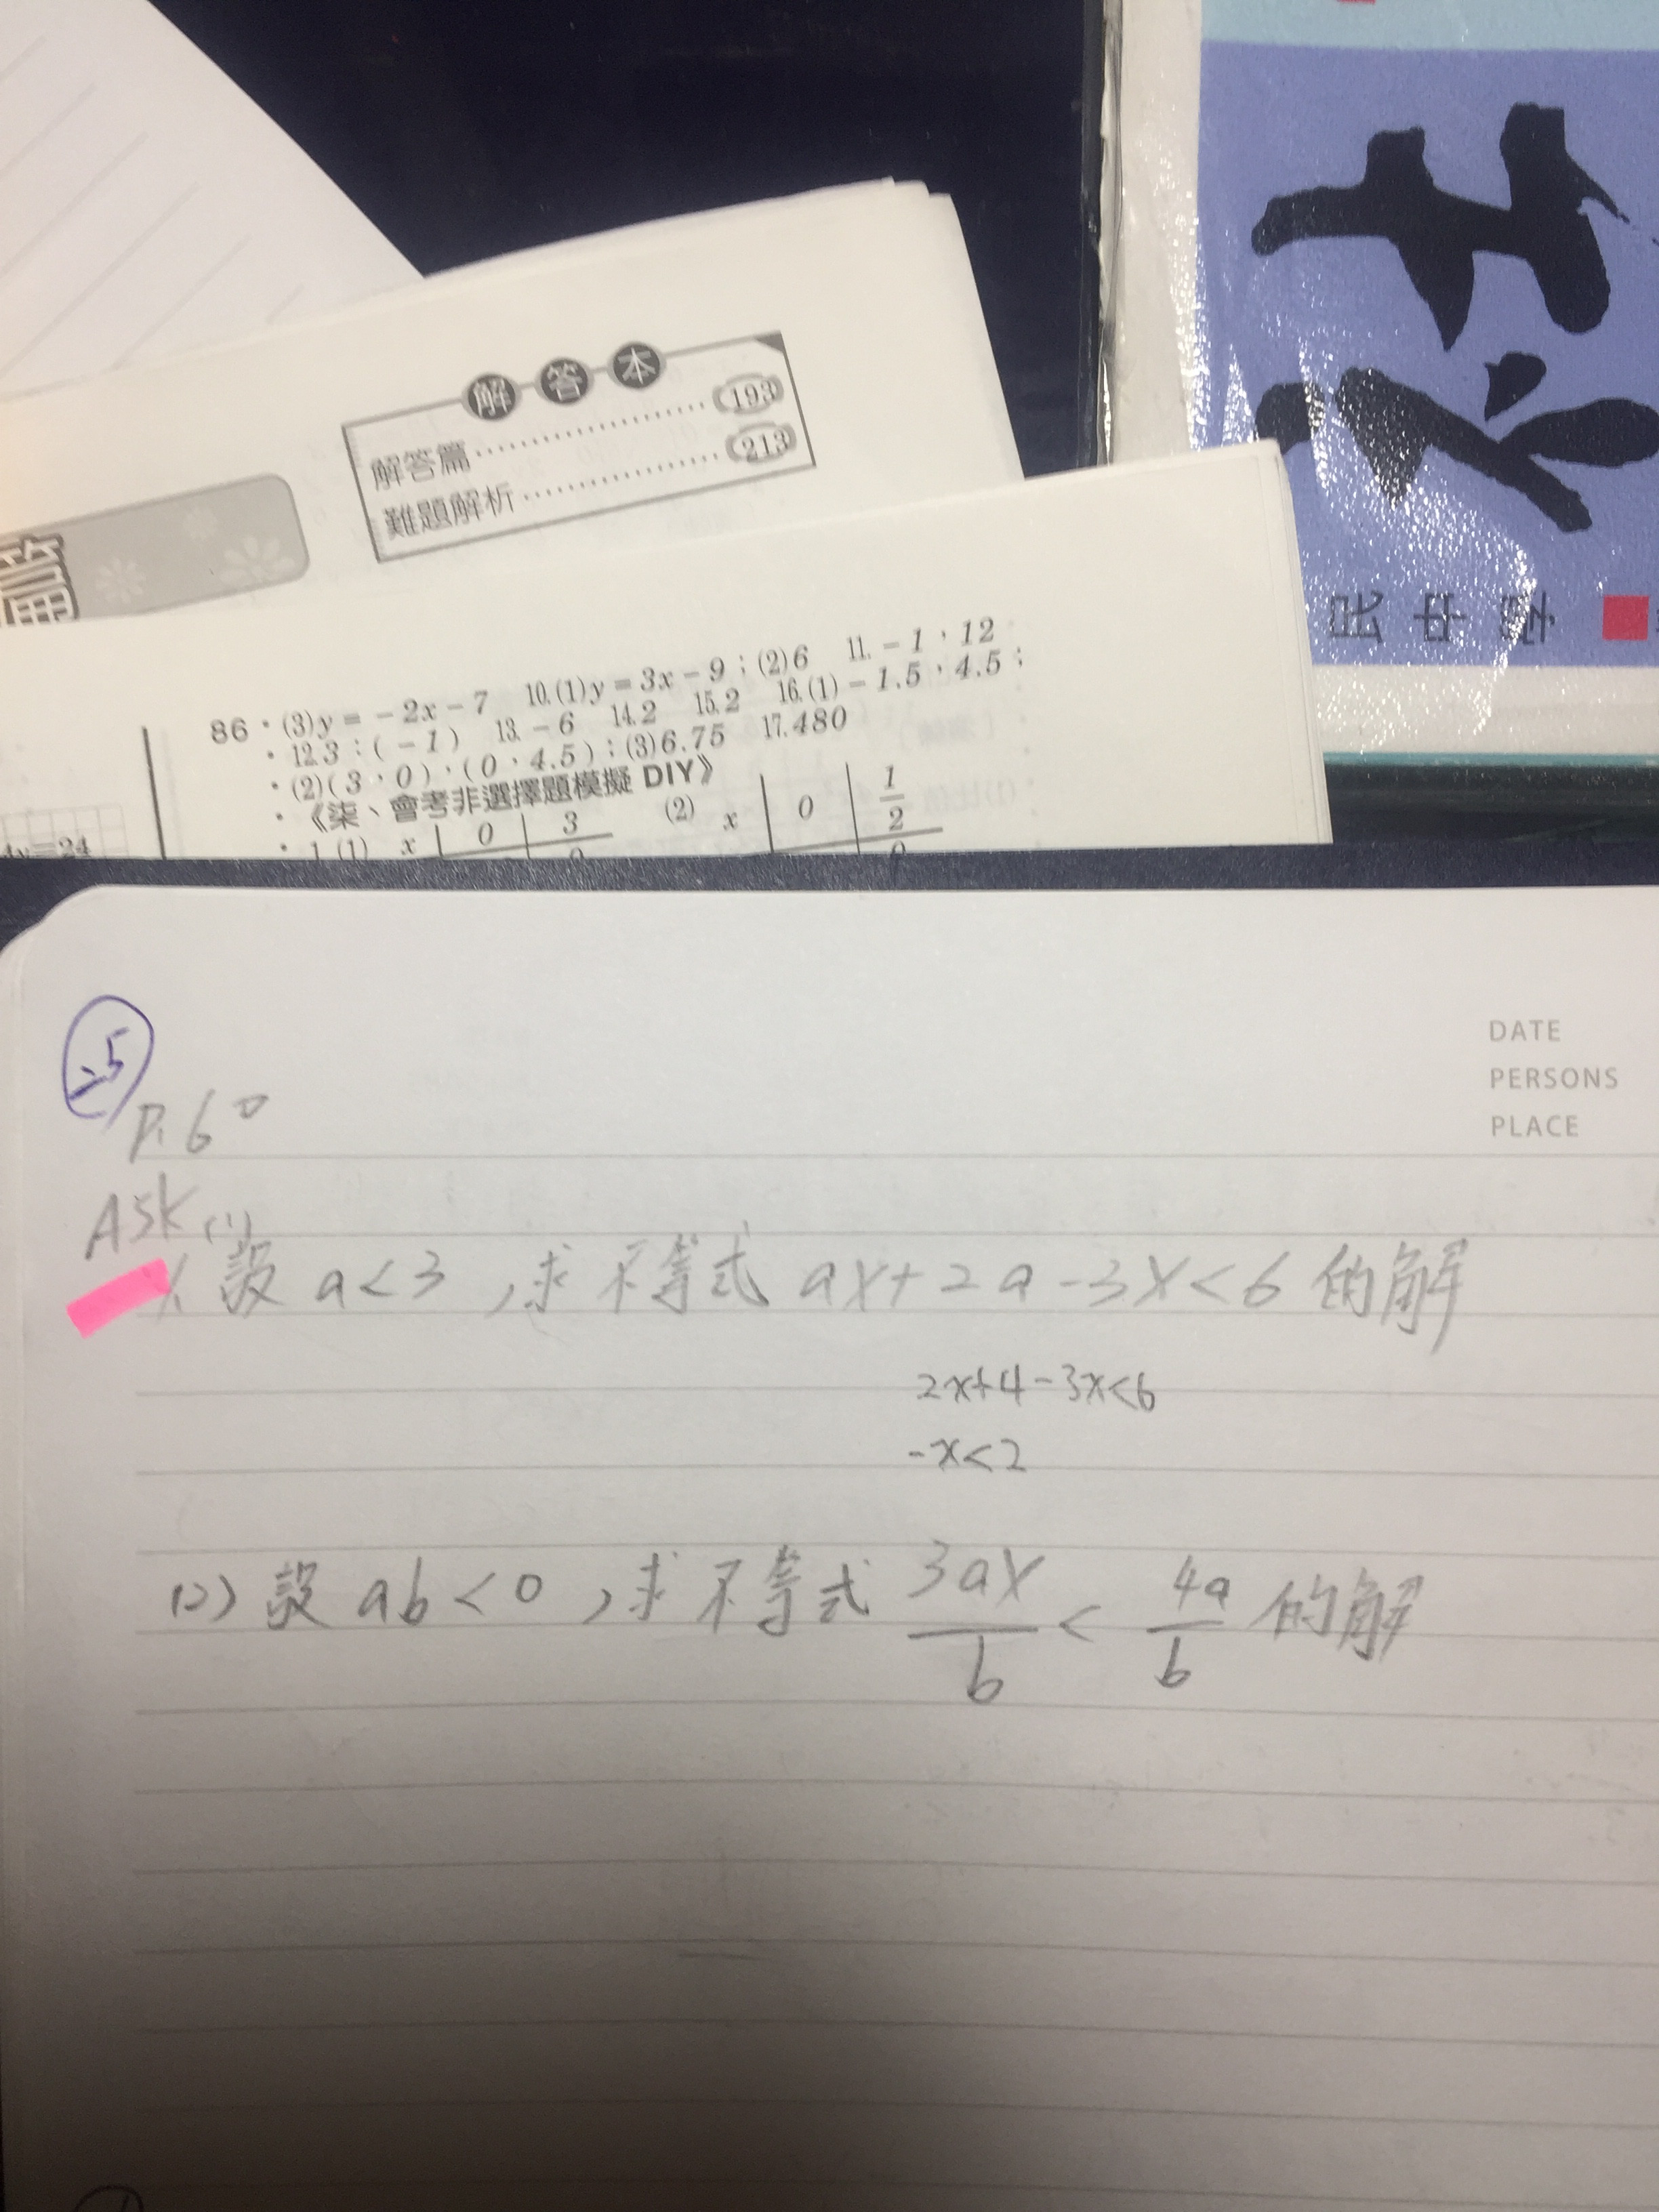 解答本
解答篇 193
難題解析 213
篇
86 · (3)y = -2x - 7 10.(1)y = 3x - 9;(2)6 11. -1,12
· 12.3:(-1) 13. -6 14.2 15.2 16.(1) -1.5,4.5;
· (2)(3,0),(0,4.5);(3)6.75 17.480
· 《柒、會考非選擇題模擬 DIY》
· 1.(1) x 0 3 (2) x 0 1/2
4x=24
DATE
PERSONS
PLACE
2.5
P.60
ASK (1)
設 a<3 ,求不等式 ax+2a-3x<6 的解
2x+4-3x<6
-x<2
(2) 設 ab<0 ,求不等式 3ax/b < 4a/b 的解